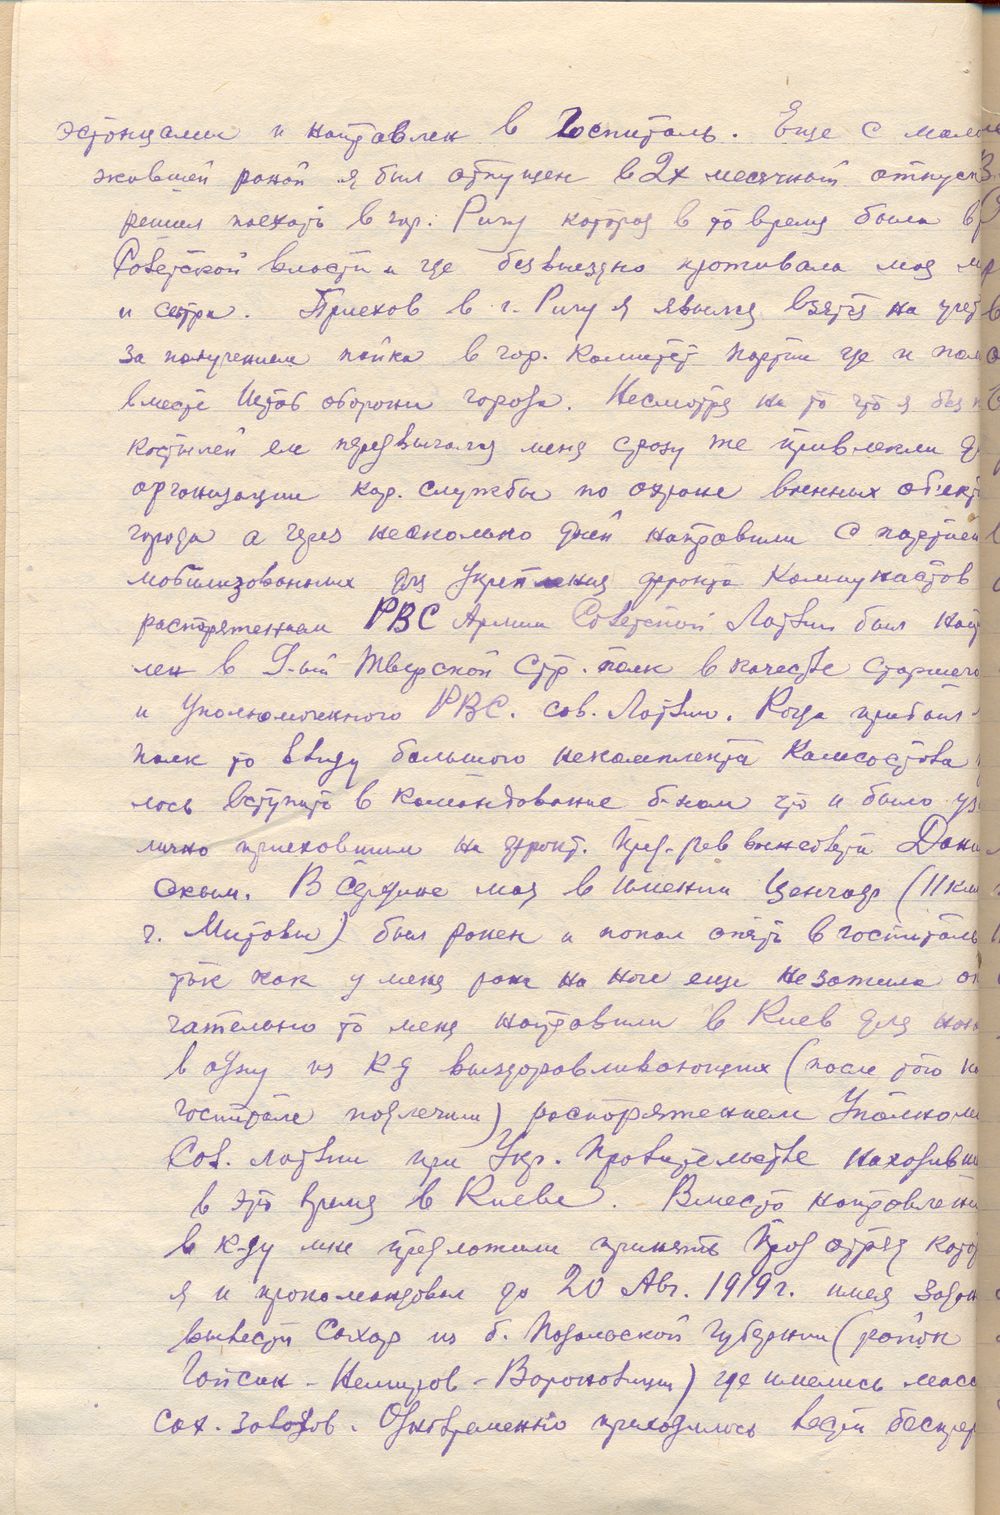 эстонцами и направлен в Госпиталь. Еще с мало
жившей раной я был отпущен в 2х месячный отпуск
решил поехать в гор. Ригу которая в то время была в
Советской власти и где безвыездно проживала моя м
и сестра. Приехав в г. Ригу я явился взятся на учет
за получением пайка в гор. Комитет партии где и пол
вместе Штаб обороны города. Несмотря на то что я без
костылей еле передвигался меня сразу же привлекли д
организации кар. службы по охране военных об'ект
города а через несколько дней направили с партией
мобилизованных для укрепления фронта Коммунистов
распоряжением РВС Армии Советской Латвии был нап
лен в 9-ый Тверской Стр. полк в качестве старшего
и Уполномоченного РВС. сов. Латвии. Когда прибыл
полк то ввиду большого некомплекта Комсостава
лось вступить в командование б-ном что и было уз
лично приехавшим на фронт. Пред. рев военсовета Дани
ским. В середине мая в имении Ценгоф (11 км
г. Митавы) был ранен и попал опять в госпиталь
так как у меня рана на ноге еще не зажила ок
чательно то меня направили в Киев для
в одну из к-д выздоравливающих (после того
госпитале подлечили) распоряжением Уполном
Сов. Латвии при Укр. Правительстве находивш
в это время в Киеве. Вместо направлени
в к-ду мне предложили принять Прод отряд кото
я и прокомандовал до 20 Авг. 1919г. имея задан
вывести Сахар из б. Подольской губернии (район
Гайсин - Немиров - Вороновицы) где имелись масса
сах. заводов. Одновременно приходилось вести беспрер